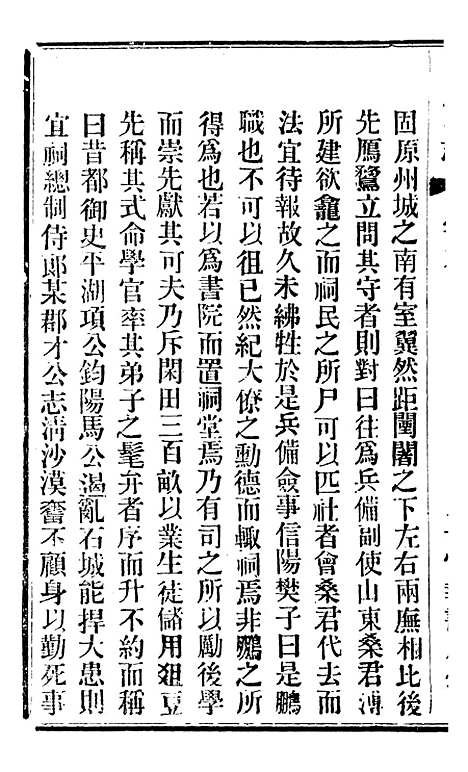 固原州城之南有室翼然距闉闍之下左右兩廡相比後
先鴈鶩立問其守者則對曰往爲兵備副使山東桑君溥
所建欲龕之而祠民之所尸可以匹社者會桑君代去而
法宜待報故久未紼牲於是兵備僉事信陽樊子曰是鵬
職也不可以徂已然紀大僚之勳德而輙祠焉非鵬之所
得爲也若以爲書院而置祠堂焉乃有司之所以勵後學
而崇先獻其可夫乃斥閑田三百畝以業生徒儲用俎豆
先稱其式命學官率其弟子之髦弁者序而升不約而稱
曰昔都御史平湖項公鈞陽馬公遏亂石城能捍大患則
宜祠總制侍郎某郡才公志淸沙漠奮不顧身以勤死事